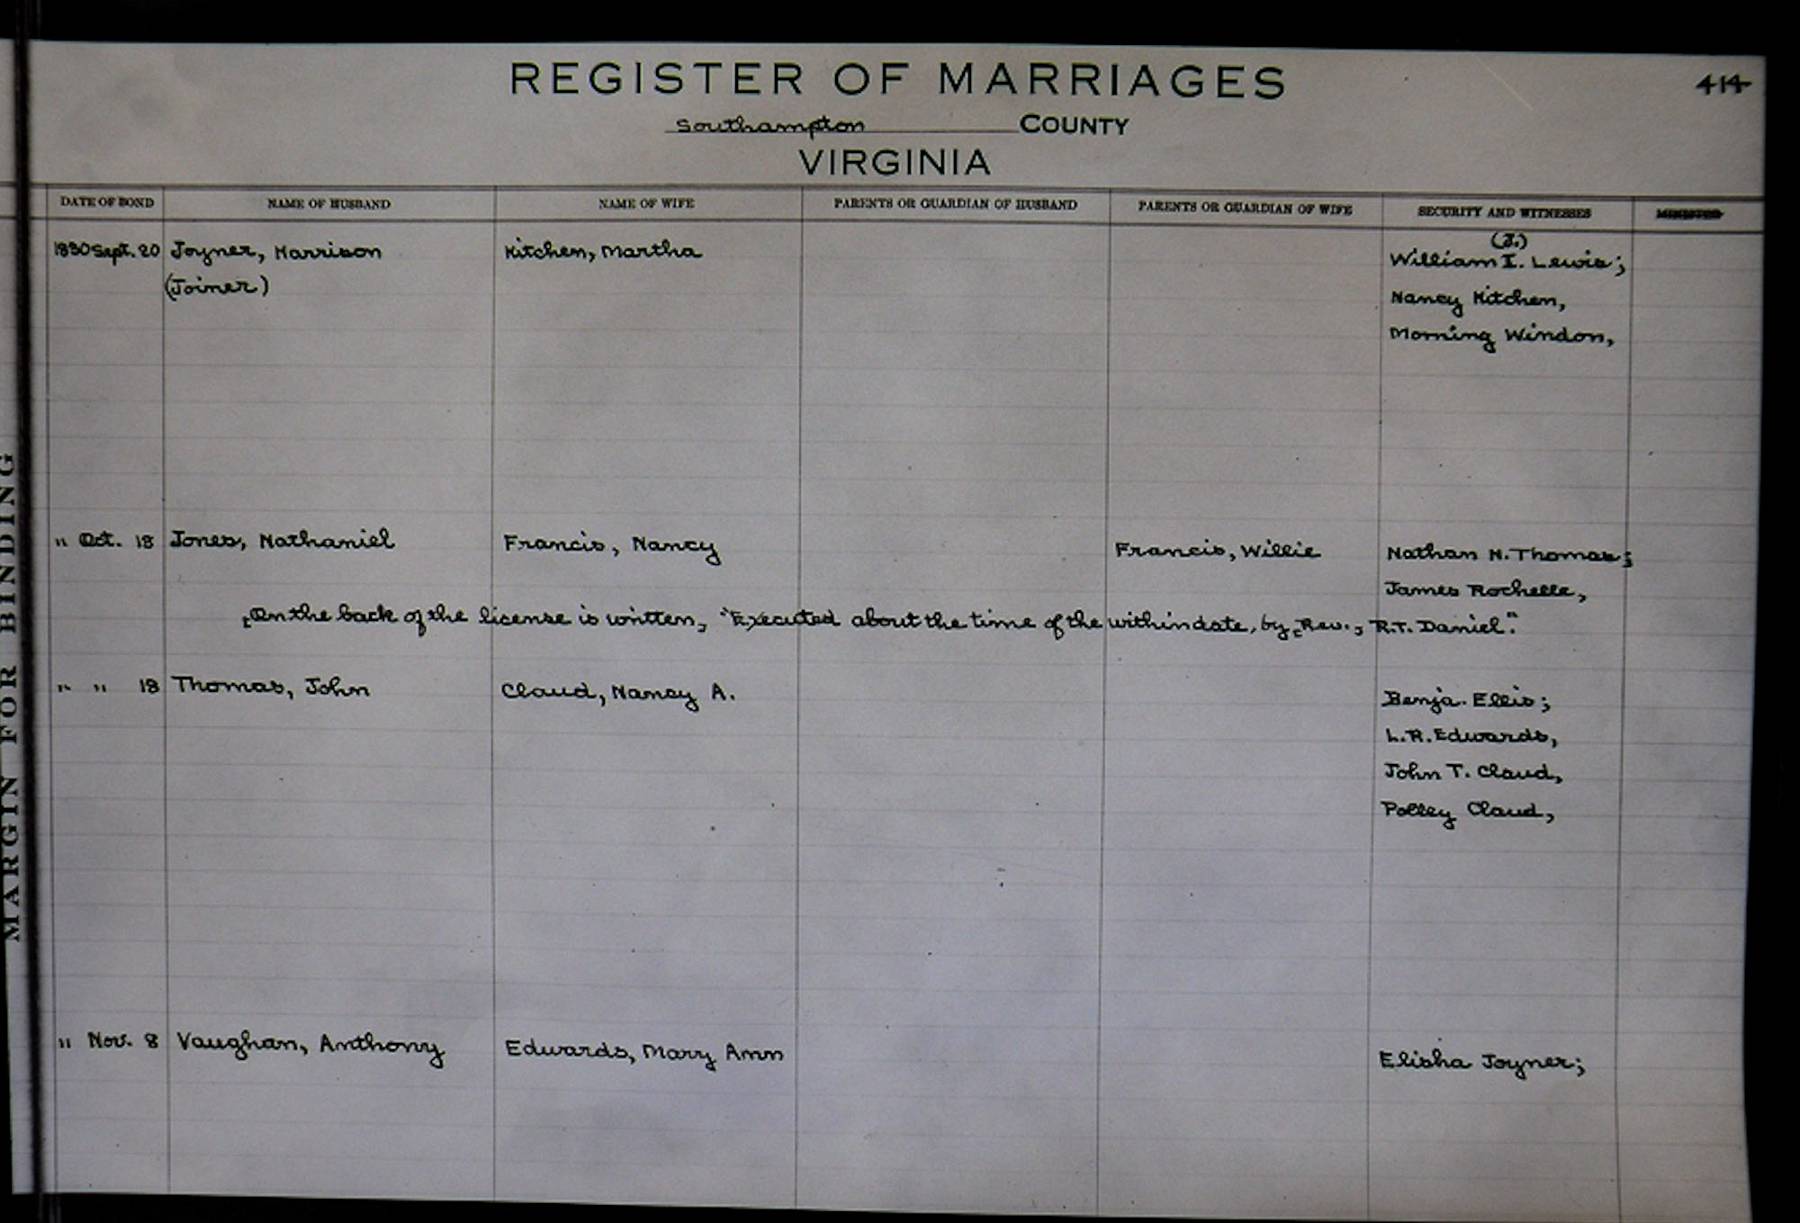 REGISTER OF MARRIAGES 414
Southampton COUNTY
VIRGINIA
DATE OF BOND NAME OF HUSBAND NAME OF WIFE PARENTS OR GUARDIAN OF HUSBAND PARENTS OR GUARDIAN OF WIFE SECURITY AND WITNESSES MINISTER
(J.)
1830 Sept. 20 Joyner, Harrison Kitchen, Martha William I. Lewis;
(Joiner) Nancy Kitchen,
Morning Windon,
" Oct. 18 Jones, Nathaniel Francis, Nancy Francis, Willie Nathan N. Thomas;
James Rochelle,
[On the back of the license is written, "Executed about the time of the within date, by [Rev.] R.T. Daniel".
" " 18 Thomas, John Claud, Nancy A. Benja. Ellis;
L.R. Edwards,
John T. Claud,
Polley Claud,
" Nov. 8 Vaughan, Anthony Edwards, Mary Ann Elisha Joyner;
MARGIN FOR BINDING